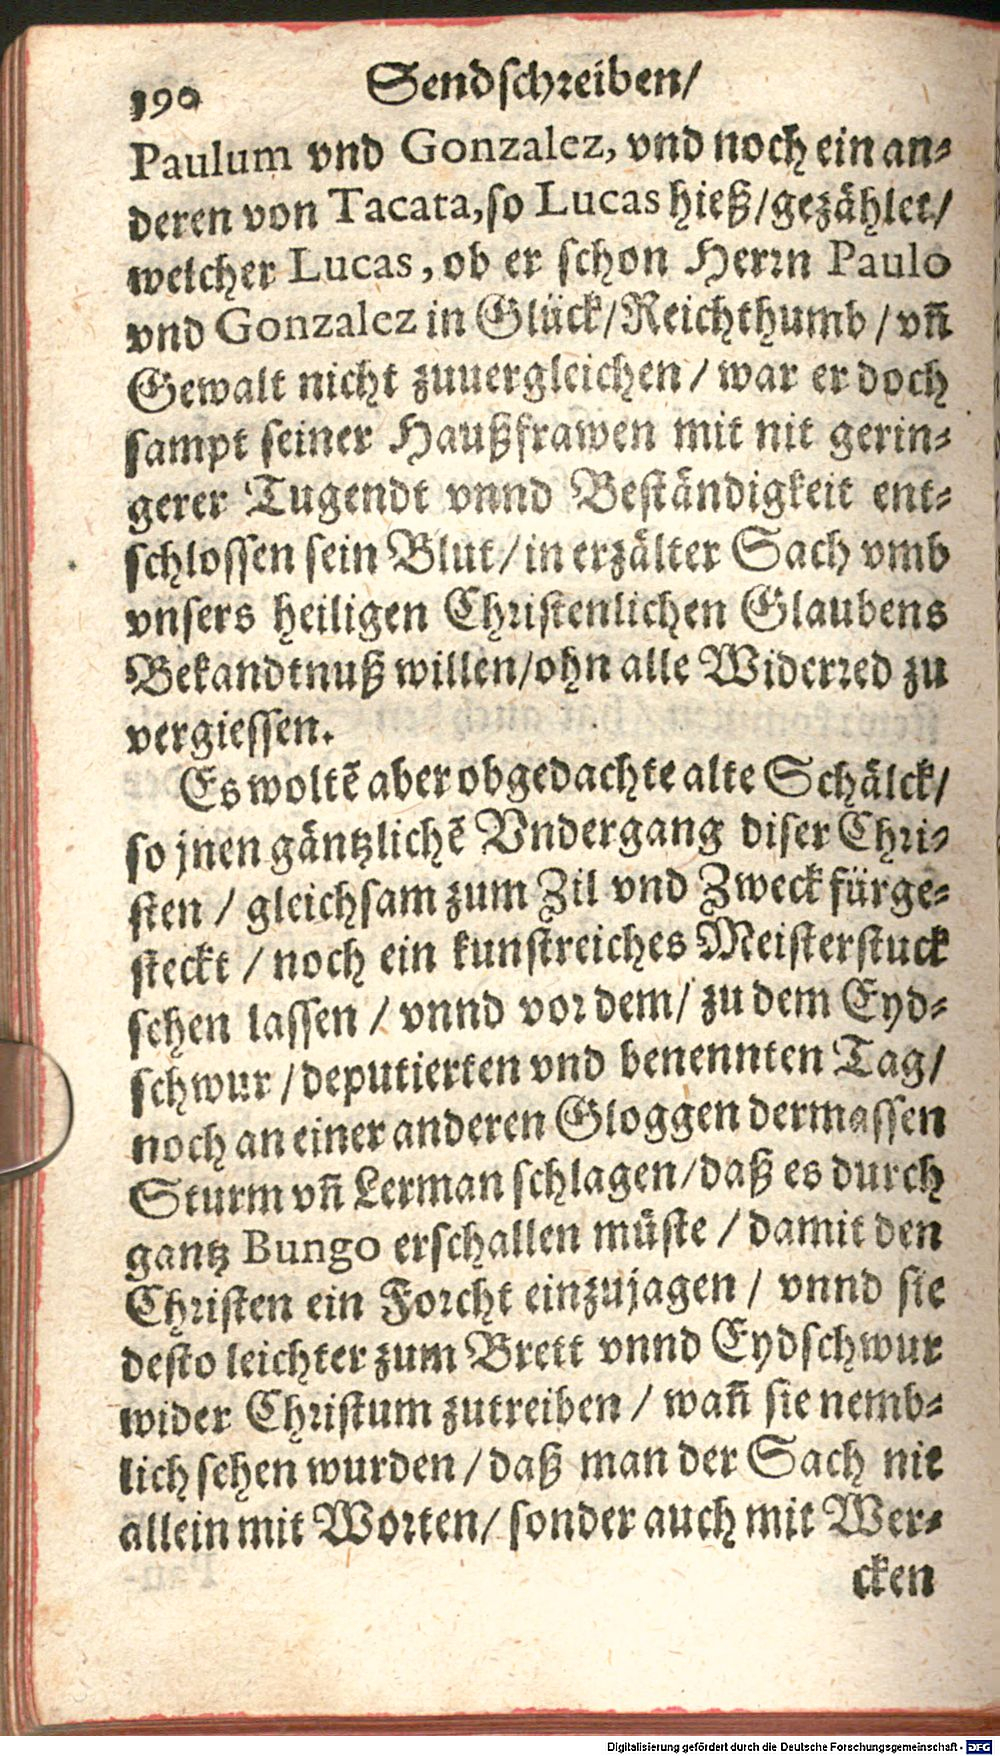 190 Sendschreiben/
Paulum vnd Gonzalez, vnd noch ein an-
deren von Tacata, so Lucas hieß/gezählet/
welcher Lucas, ob er schon Herrn Paulo
vnd Gonzalez in Glück/Reichthumb/vn̄
Gewalt nicht zuuergleichen/war er doch
sampt seiner Haußfrawen mit nit gerin-
gerer Tugendt vnnd Beständigkeit ent-
schlossen sein Blut/in erzälter Sach vmb
vnsers heiligen Christenlichen Glaubens
Bekandtnuß willen/ohn alle Widerred zu
vergiessen.
Es woltē aber obgedachte alte Schälck/
so jnen gäntzlichē Vndergang diser Chri-
sten/gleichsam zum Zil vnd Zweck fürge-
steckt/noch ein kunstreiches Meisterstuck
sehen lassen/vnnd vor dem/zu dem Eyd-
schwur/deputierten vnd benennten Tag/
noch an einer anderen Gloggen dermassen
Sturm vn̄ Lerman schlagen/daß es durch
gantz Bungo erschallen müste/damit den
Christen ein Forcht einzujagen/vnnd sie
desto leichter zum Brett vnnd Eydschwur
wider Christum zutreiben/wan̄ sie nemb-
lich sehen wurden/daß man der Sach nit
allein mit Worten/sonder auch mit Wer-
cken
Digitalisierung gefördert durch die Deutsche Forschungsgemeinschaft - DFG